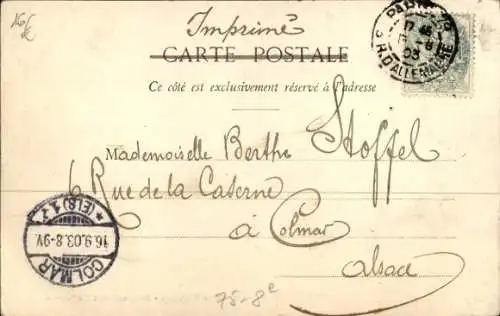 Imprimé
CARTE POSTALE
Ce côté est exclusivement réservé à l'adresse
Mademoiselle Berthe Stoffel
6 Rue de la Caserne
à Colmar
Alsace
PARIS
03
R. D'ALLEMAGNE
COLMAR
16.9.03.8-9V.
* (ELS) 1 *
75-8e